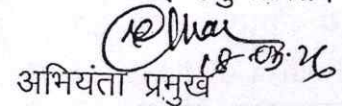 18-03-26
अभियंता प्रमुख